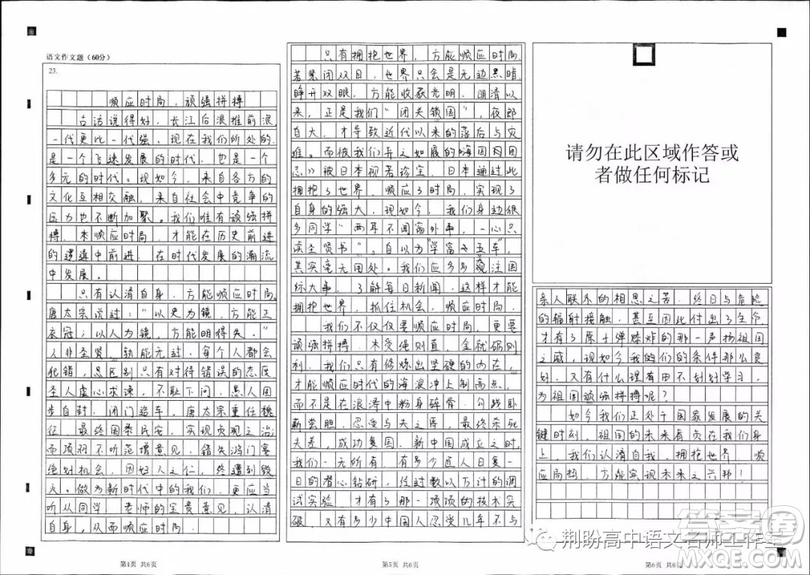 语文作文题（60分）
23.
顺应时局，顽强拼搏
古话说得好，长江后浪推前浪
一代更比一代强。现在我们所处的
是一个飞速发展的时代，也是一个
多元的时代。现如今，来自各方的
文化互相交融，来自社会中竞争的
压力也不断加聚。我们唯有顽强拼
搏，来顺应时局，才能在历史前进
的逻辑中前进，在时代发展的潮流
中发展。
只有认清自身，方能顺应时局
唐太宗说过：“以史为镜，方能正
衣冠；以人为镜，方能明得失。”
人非圣贤，孰能无过，每个人都会
犯错，总区别只有对待错误的态度
圣人虚心求谏，不耻下问，愚人固
步自封，闭门造车，唐太宗重任魏
征，最终国泰民安，实现贞观之治
而项羽不听范增意见，错失鸿门宴
绝好机会，因妇人之仁，终遭到毁
灭。做为新时代中的我们，更应当
听从同学、老师的宝贵意见，认清
自身，从而顺应时局。
第1页 共6页
只有拥抱世界，方能顺应时局
若紧闭双目，世界只会是无边黑暗
睁开双眼，方能收获光明，明清以
来，正是我们“闭关锁国”，夜郎
自大，才导致近代以来的落后与灾
难。而被我们弃之如履的《海国图
志》被日本视若珍宝，日本通过此
拥抱了世界，顺应了时局，实现了
自身的强大，现如今，我们身边很
多同学“两耳不闻窗外事，一心只
读圣贤书”，自以为“学富五车”
其实毫无用处。我们应多多关注国
际大事，了解每日新闻，这样才能
拥抱世界，抓住机会，顺应时局。
我们不仅仅要顺应时局，更要
顽强拼搏。木受绳则直，金就砺则
利，我们只有修炼出坚硬的内在，
才能顺应时代的海浪冲上制高点，
而不是在浪涛中粉身碎骨，勾践卧
薪尝胆，忍受与夫之辱，最终杀死
夫差，成功复国，新中国成立之时
我们一无所有，有多少匠人日复一
日的潜心钻研，经过数以万计的调
试实验，才有了那一项项的技术突
破，又有多少中国人忍受几年不与
第5页 共6页
请勿在此区域作答或
者做任何标记
亲人联系的相思之苦，终日与危险
的辐射接触，甚至因此付出了生命
才有了原子弹爆炸的那一声扬祖国
之威，现如今我们的条件那么良
好，又有什么理由不刻刻学习，
为祖国顽强拼搏呢？
如今我们正处于国家发展的关
键时刻，祖国的未来有负在我们身
上，我们只有认清自我，拥抱世界，顺
应局势，方能实现未来之兴邦！
第6页 共6页
荆盼高中语文名师工作室
答案圈
MXQE.COM